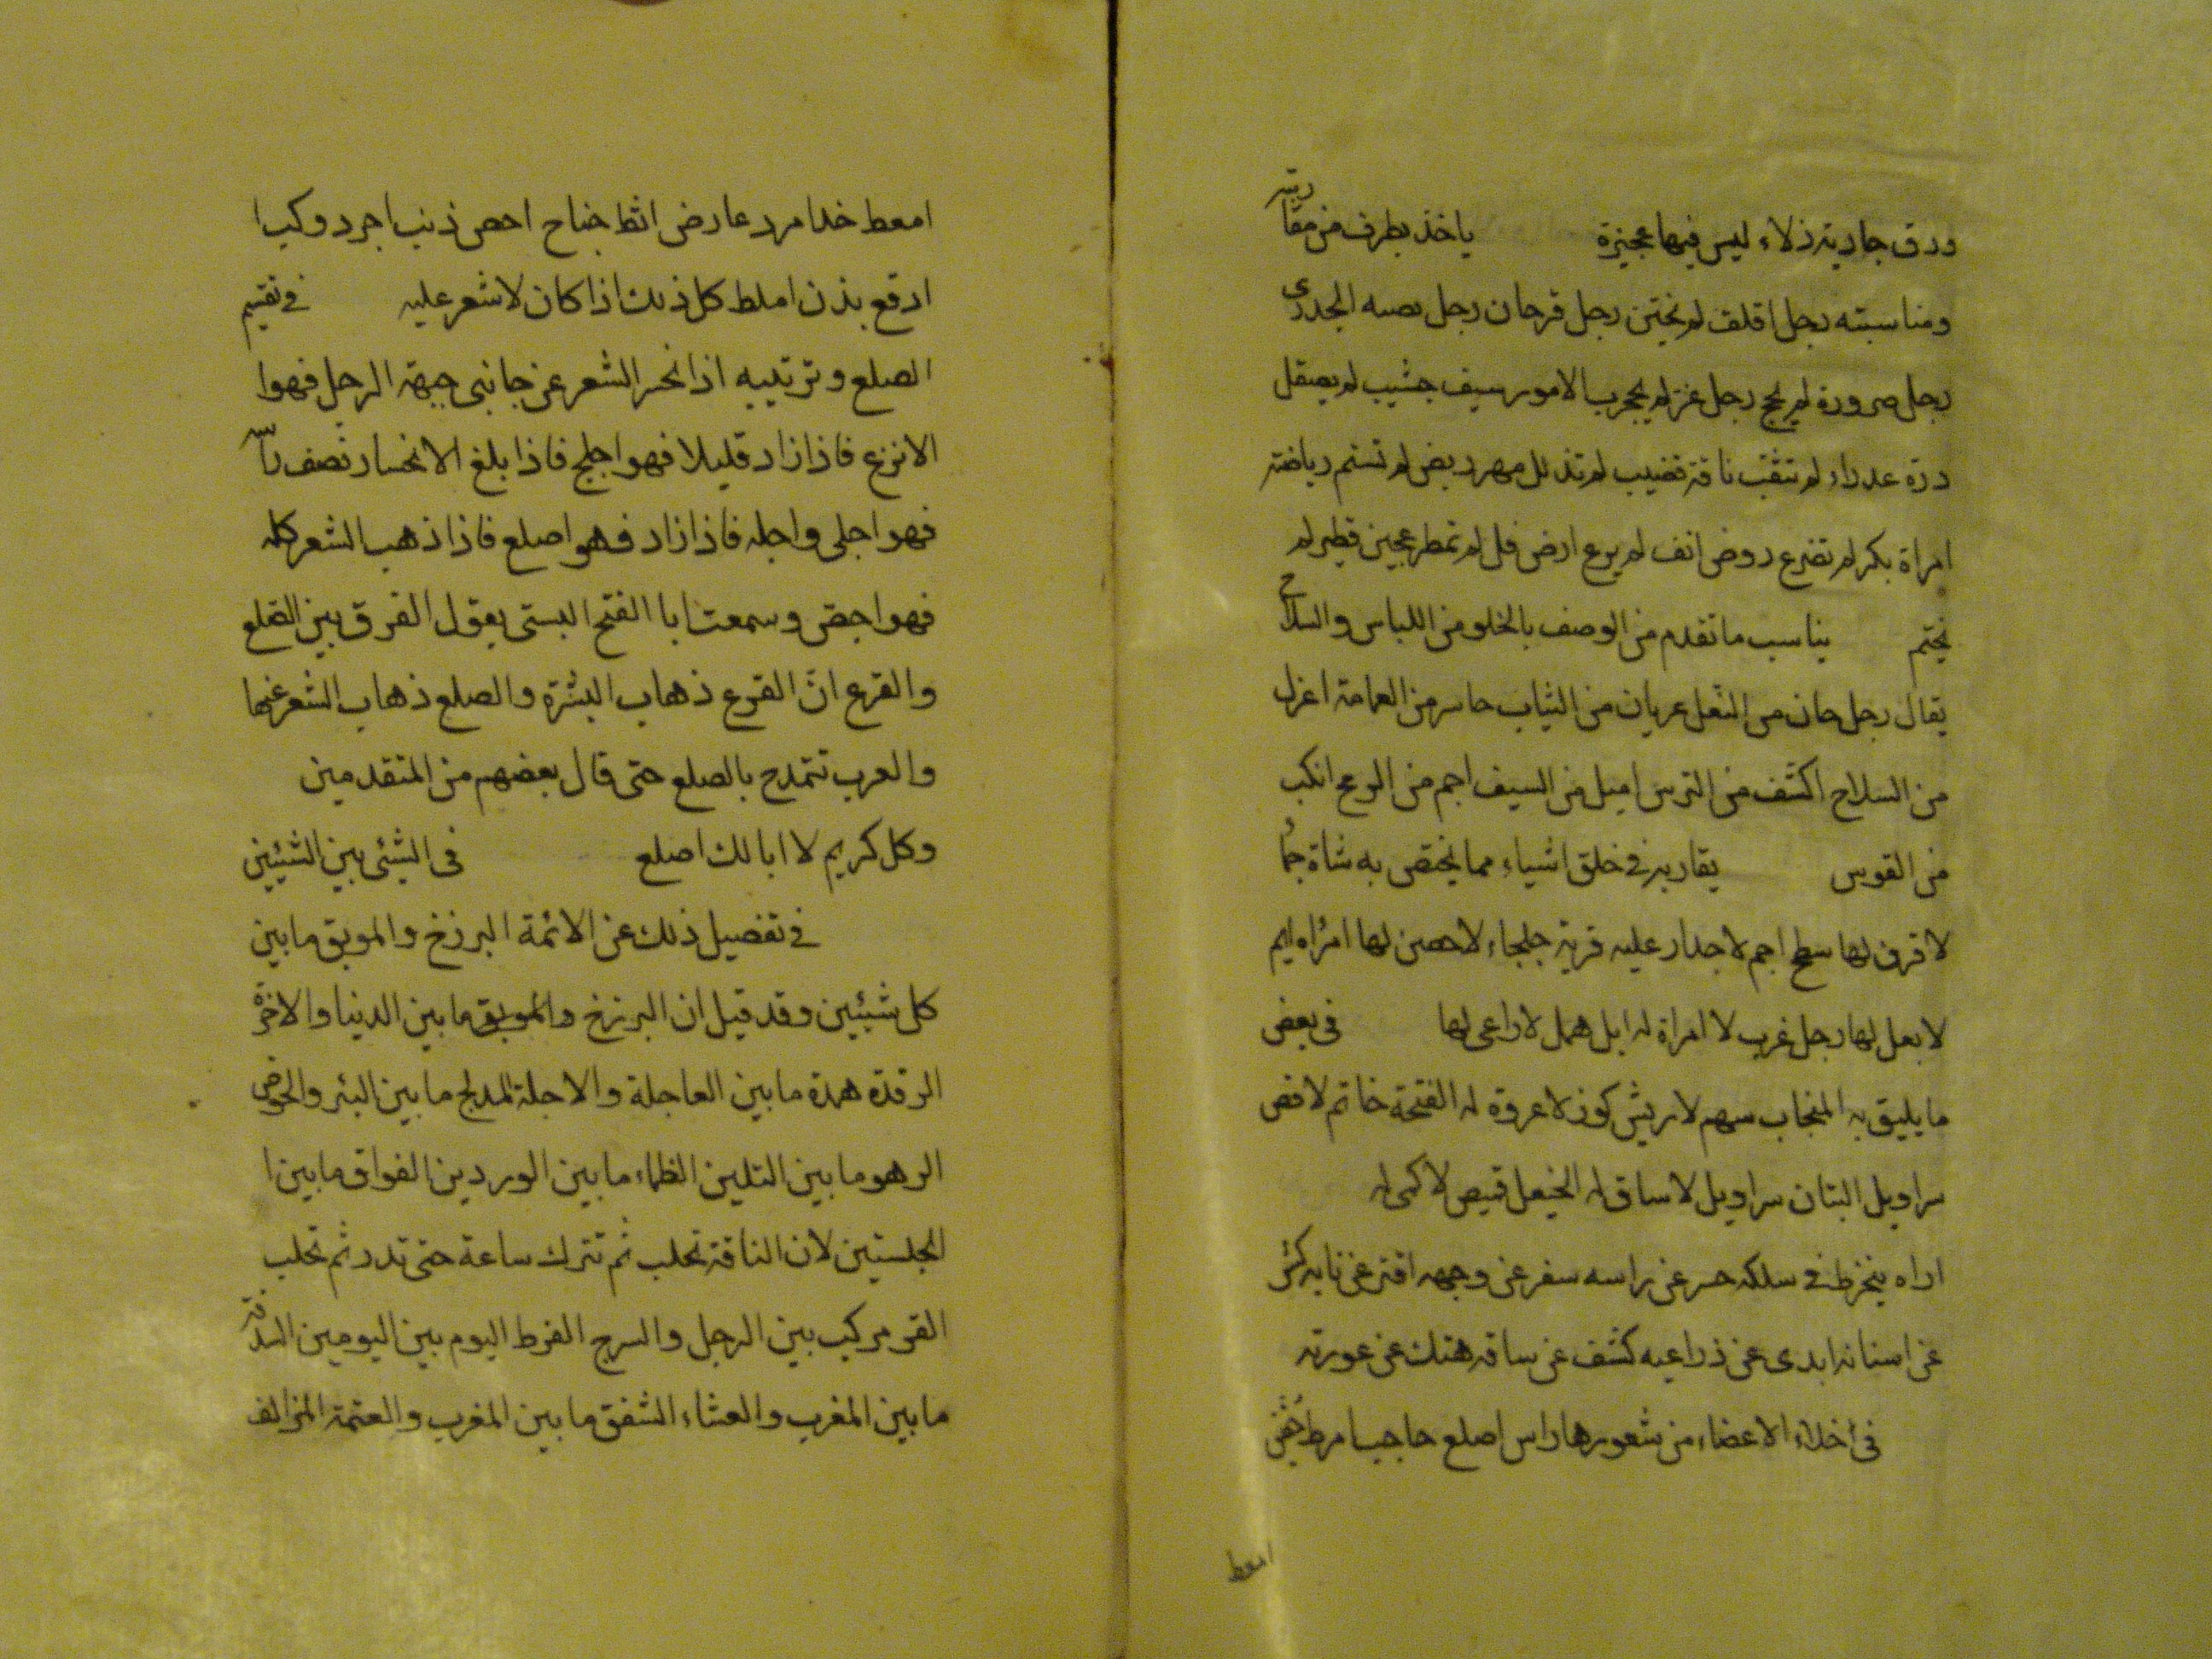 ورق جارية زلاء ليس فيها عجيزة ياخذ بطرف من مقاربته
ومناسبته رجل اقلف لم يختن رجل قرحان رجل يصبه الجدرى
رجل صرورة لم يحج رجل غر لم يجرب الامور سيف خشيب لم يصقل
درة عذراء لم تثقب ناقة قضيب لم تذلل مهر ريض لم تستم رياضته
امراة بكر لم تفترع روض انف لم يرع ارض فل لم تمطر عجين فطير لم
يختم يناسب ما تقدم من الوصف بالخلو من اللباس والسلاح
يقال رجل حان من النعل عريان من الثياب حاسر من العمامة اعزل
من السلاح اكشف من الترس اميل من السيف اجم من الرمح انكب
من القوس يقاربه في خلق اشياء مما يختص به شاة جما
لا قرن لها سطح اجم لا جدار عليه قرية جلحاء لا حصن لها امراه ايم
لا بعل لها رجل عزب لا امراة له ابل همل لا راعى لها فى بعض
ما يليق به المنجاب سهم لا ريش كوز لا عروة له الفتخة خاتم لا فص
سراويل التبان سراويل لا ساق له الخيعل قميص لا كمى له
اراه ينخرط في سلكه حسر عن راسه سفر عن وجهه افتر عن نابه كشر
عن اسنانه ابدى عن ذراعيه كشف عن ساقه هتك عن عورته
فى اخلاء الاعضاء من شعورها راس اصلع حاجب امرط جفن
امعط
امعط خد امرد عارض اثط جناح احص ذنب اجرد وكب ا
ادقع بدن املط كل ذلك اذا كان لا شعر عليه في تقسيم
الصلع وترتيبه اذا انحسر الشعر عن جانبى جبهة الرجل فهوا
الانزع فاذا زاد قليلا فهو اجلح فاذا بلغ الانحسار نصف راسه
فهو اجلى واجله فاذا زاد فهو اصلع فاذا ذهب الشعر كله
فهو احص وسمعت ابا الفتح البستى يقول الفرق بين الصلع
والقرع انّ القرع ذهاب البشرة والصلع ذهاب الشعر عنها
والعرب تتمدح بالصلع حتى قال بعضهم من المتقدمين
وكل كريم لا ابا لك اصلع فى الشئى بين الشيئين
في تفصيل ذلك عن الائمة البرزخ والموبق ما بين
كل شيئين وقد قيل ان البرزخ والموبق ما بين الدنيا والاخرة
الرقدة همدة ما بين العاجلة والاجلة المدلج ما بين البئر والحوض
الرهو ما بين التلين الظماء ما بين الوردين الفواق ما بين ا
الحلبتين لان الناقة تحلب ثم تترك ساعة حتى تدر ثم تحلب
القر مركب بين الرجل والسرج الفرط اليوم بين اليومين السدفة
ما بين المغرب والعشاء الشفق ما بين المغرب والعتمة المزالف